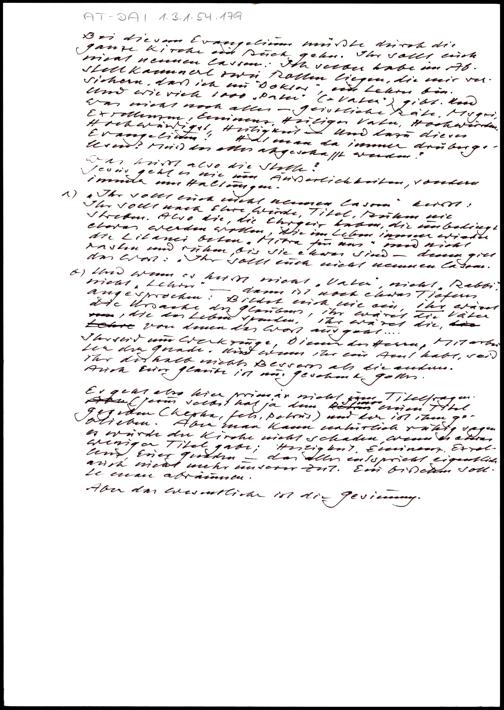 AT-DAI 1.3.1.54.179
Bei diesem Evangelium müßte durch die
ganze Kirche ein Ruck gehn. Ihr sollt euch
nicht nennen lassen: Ich selber habe im Ab-
stellkammerl zwei Rollen liegen, die mir ver-
sichern, daß ich ein "Doktor", ein Lehrer bin.
Und wie viele 1000 "Patres" (= Väter) gibt. Und
was nicht noch alles - geistliche Räte, Msgri,
Exzellenzen, Eminenz, Heiliger Vater, Hochwürden,
Hochwürdigst, Heiligkeit - Und dazu dieses
Evangelium! Hat man da immer drüberge-
lesen? Muß das alles abgeschafft werden?
Was heißt also die Stelle?
Jesus geht es nie um Äußerlichkeiten, sondern
immer um Haltungen.
1) "Ihr sollt euch nicht nennen lassen" heißt:
Ihr sollt nach Ehre, Würde, Titel, Ruhm nie
streben. Also die, die Ehrgeiz haben, die unbedingt
etwas werden wollen, die im Leben immer wieder
die Litanei beten "Mitra für uns" und nicht
rasten und ruhen, bis sie etwas sind - denen gilt
das Wort: "Ihr sollt euch nicht nennen lassen.
2) Und wenn es heißt nicht "Vater", nicht "Rabbi",
nicht "Lehrer" - dann ist noch etwas Tieferes
angesprochen: Bildet euch nie ein, ihr wäret
die Ursache des Glaubens, ihr wäret die Väter
die das Leben spenden, ihr wäret die,
von denen das Wort ausgeht....
Ihr seid nur Werkzeuge, Diener des Herrn, Mitarbei-
ter der Gnade. Und wenn ihr ein Amt habt, seid
ihr deshalb nichts Besseres als die andern.
Auch Euer Glaube ist nur Geschenk Gottes.
Es geht also hier primär nicht um Titelfragen.
(Jesus selbst hat ja dem Simon einen Titel
gegeben (Kephas, Fels, Petrus) und der ist ihm ge-
blieben. Aber man kann natürlich ruhig sagen
es würde der Kirche nicht schaden, wenn es etwas
weniger Titel gäbe; Heiligkeit, Eminenz, Exzel-
lenz, Euer Gnaden - das alles entspricht eigentlich
auch nicht mehr unserer Zeit. Ein bißchen soll-
te man abräumen.
Aber das wesentliche ist die Gesinnung.